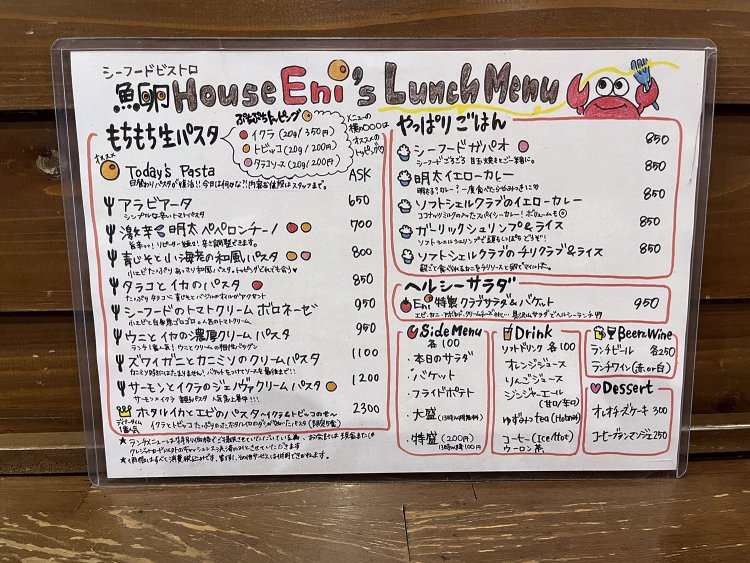 シーフードビストロ
魚卵House Eni's Lunch Menu
もちもち生パスタ
ぷちぷちトッピング
イクラ (20g/350円)
トビッコ (20g/200円)
タラコソース (20g/200円)
メニューの
横の○○○は
オススメの
トッピング♡
オススメ
Today's Pasta ASK
アラビアータ 650
シンプルな辛いトマトパスタ
激辛 明太ペペロンチーノ 700
青じそと小海老の和風パスタ 800
タラコとイカのパスタ 850
シーフードのトマトクリームボロネーゼ 950
ウニとイカの濃厚クリームパスタ 950
ズワイガニとカニミソのクリームパスタ 1100
サーモンとイクラのジェノヴァクリームパスタ 1200
ディナータイム
1番人気
ホタルイカとエビのパスタ〜イクラ&トビッコのせ〜 2300
やっぱりごはん
シーフードガパオ 850
シーフードごろごろ 目玉焼きとご一緒に。
明太イエローカレー 850
ソフトシェルクラブのイエローカレー 850
ガーリックシュリンプ&ライス 850
ソフトシェルクラブのチリクラブ&ライス 850
ヘルシーサラダ
Eni特製クラブサラダ&バケット 950
Side Menu
各100
・本日のサラダ
・バケット
・フライドポテト
・大盛
・特盛 (200円)
Drink
ソフトドリンク 各100
オレンジジュース
りんごジュース
ジンジャーエール
(甘口/辛口)
ゆずみつtea (Hotのみ)
コーヒー (Ice/Hot)
ウーロン茶
Beer&Wine
ランチビール 各250
ランチワイン(赤or白)
Dessert
オレオチーズケーキ 300
コーヒーブランマンジェ 250